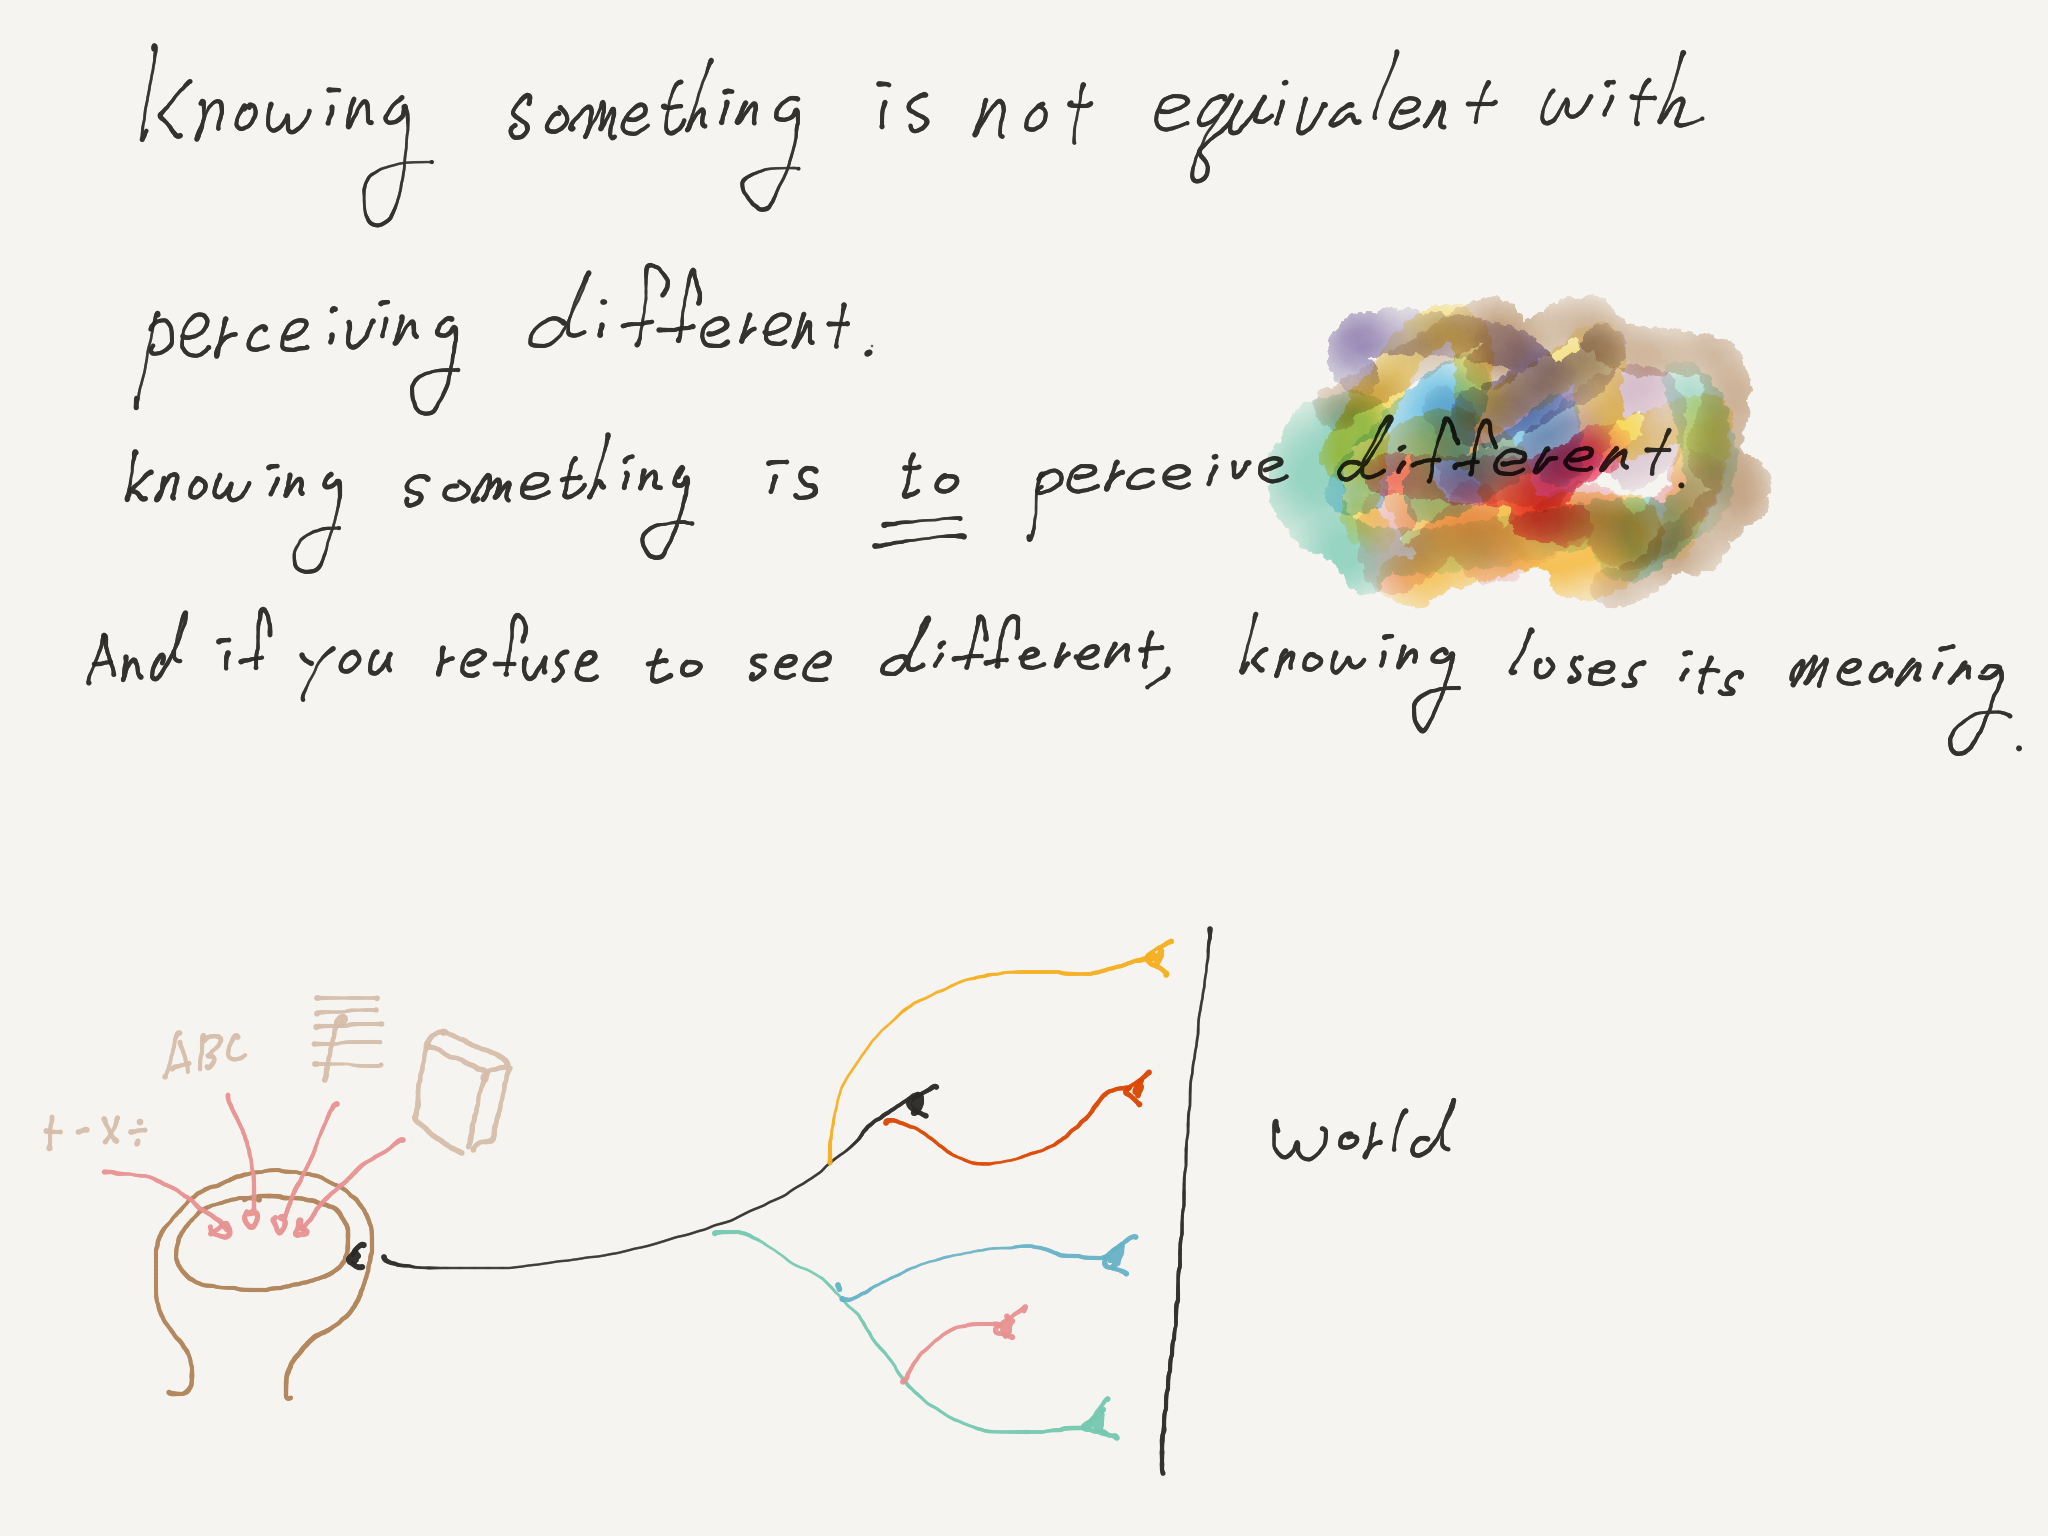 Knowing something is not equivalent with
perceiving different.
knowing something is to perceive different.
And if you refuse to see different, knowing loses its meaning.
ABC
+ - x ÷
world